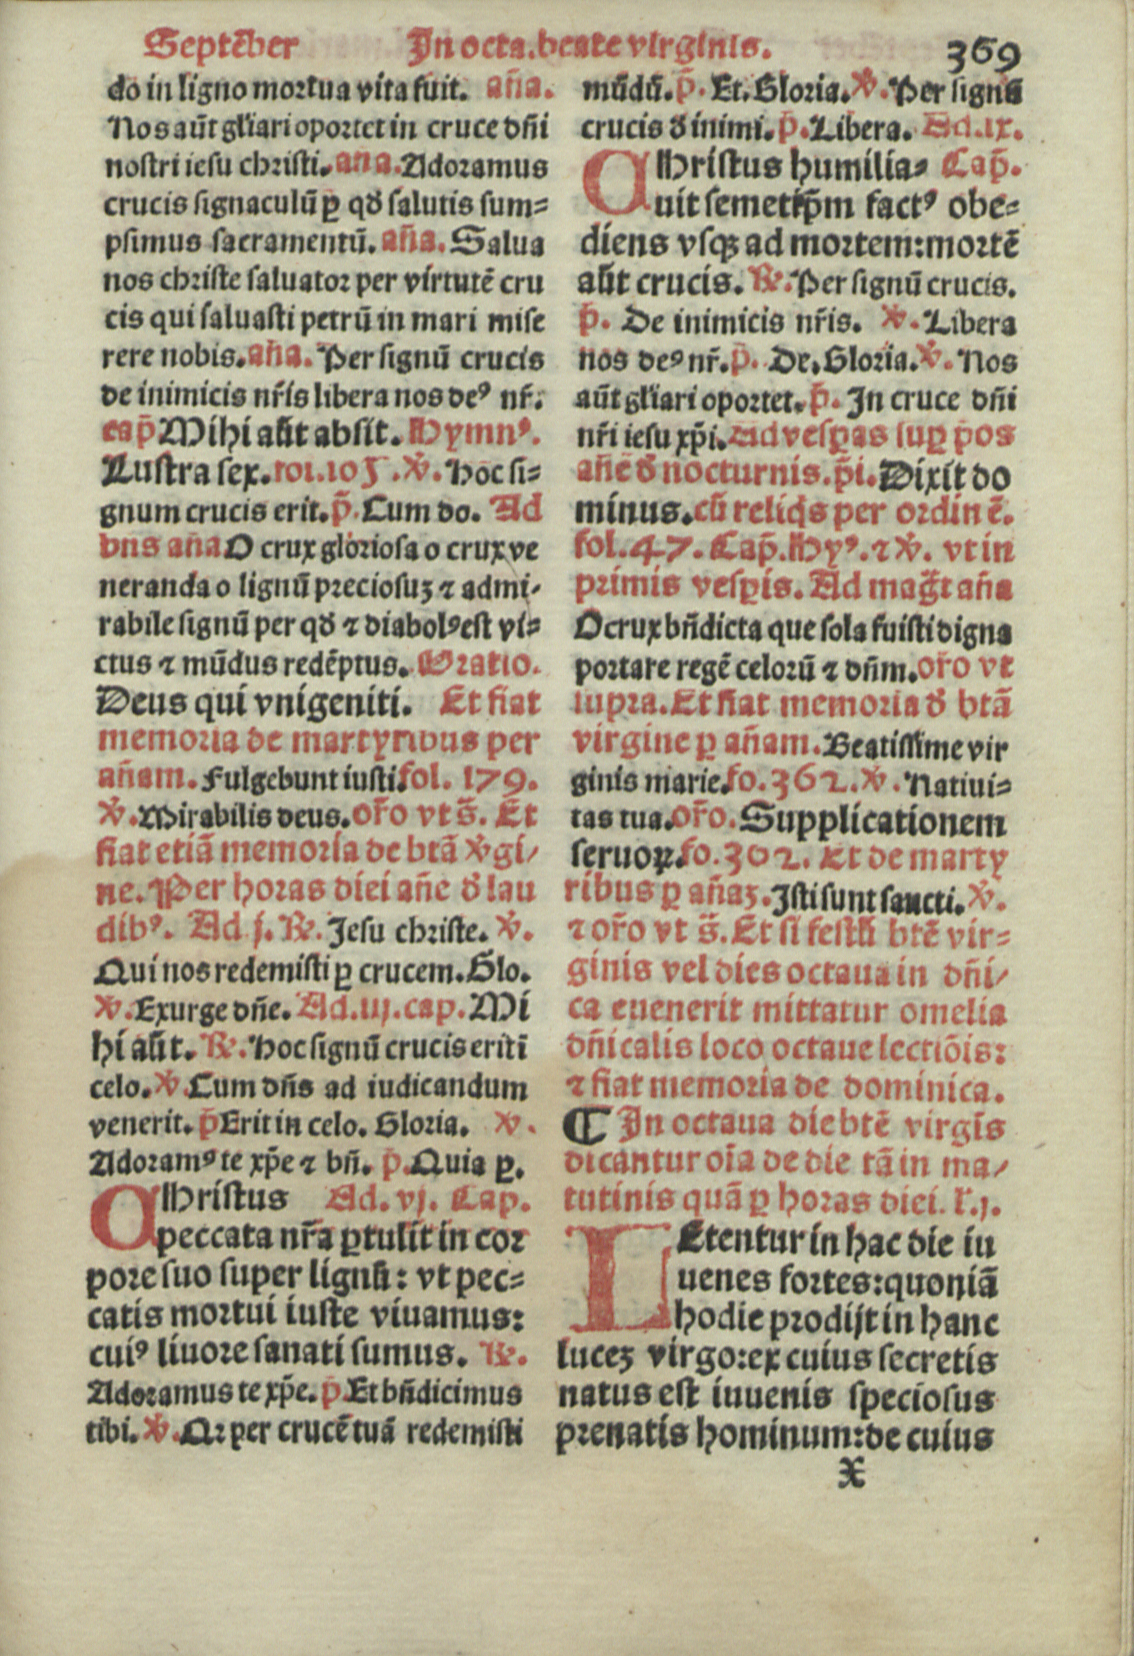 Septēber In octa.beate virginis. 369
do in ligno mortua vita fuit. aña.
Nos aūt gl̄iari oportet in cruce dñi
nostri iesu christi. aña. Adoramus
crucis signaculū ꝑ qđ salutis sum⸗
psimus sacramentū. aña. Salua
nos christe saluator per virtutē cru
cis qui saluasti petrū in mari mise
rere nobis. aña. Per signū crucis
de inimicis nr̄is libera nos deꝰ nr̄.
cap̄ Mihi aūt absit. Hymnꝰ.
Lustra sex. ℣. Hoc si⸗
gnum crucis erit. p̄. Cum do. Ad
bñs aña O crux gloriosa o crux ve
neranda o lignū preciosuꝫ ⁊ admi⸗
rabile signū per qđ ⁊ diabolꝰ est vi⸗
ctus ⁊ mūdus redēptus. Oratio.
Deus qui vnigeniti. Et fiat
memoria de martyribus per
añam. Fulgebunt iusti. fol. 179.
℣. Mirabilis deus. or̄o vt s̄. Et
fiat etiā memoria de btā ℣gi⸗
ne. Per horas diei añe đ lau
dibꝰ. Ad j. ℟. Jesu christe. ℣.
Qui nos redemisti ꝑ crucem. Glo.
℣. Exurge dñe. Ad. iij. cap. Mi
hi aūt. ℟. Hoc signū crucis erit ī
celo. ℣. Cum dñs ad iudicandum
venerit. p̄ Erit in celo. Gloria. ℣.
Adoramꝰ te xp̄e ⁊ bñ. p̄. Quia ꝑ.
Christus Ad. vj. Cap.
peccata nr̄a ꝑtulit in cor
pore suo super lignū: vt pec⸗
catis mortui iuste viuamus:
cuiꝰ liuore sanati sumus. ℟.
Adoramus te xp̄e. p̄. Et bñdicimus
tibi. ℣. Qꝛ per crucē tuā redemisti
mūdū. p̄. Et. Gloria. ℣. Per signū
crucis đ inimi. p̄. Libera. Ad. ix.
Christus humilia⸗ Cap̄.
uit semetip̄m factꝰ obe⸗
diens vsqꝫ ad mortem: mortē
aūt crucis. ℟. Per signū crucis.
p̄. De inimicis nr̄is. ℣. Libera
nos deꝰ nr̄. p̄. De. Gloria. ℣. Nos
aūt gl̄iari oportet. p̄. In cruce dñi
nr̄i iesu xp̄i. Ad vesꝑas suꝑ p̄os
añe đ nocturnis. p̄i. Dixit do
minus. cū reliq̄s per ordinē.
fol. 47. Cap̄. Hyꝰ. ⁊ ℣. vt in
primis vesꝑis. Ad maḡt aña
O crux bñdicta que sola fuisti digna
portare regē celorū ⁊ dñm. or̄o vt
supra. Et fiat memoria đ btā
virgine ꝑ añam. Beatissime vir
ginis marie. fo. 362. ℣. Natiui⸗
tas tua. or̄o. Supplicationem
seruoꝝ. fo. 302. Et de marty
ribus ꝑ añaꝫ. Isti sunt sancti. ℣.
⁊ or̄o vt s̄. Et si festū btē vir⸗
ginis vel dies octaua in dñi⸗
ca euenerit mittatur omelia
dñicalis loco octaue lectiōis:
⁊ fiat memoria de dominica.
¶ In octaua die btē virgīs
dicantur oīa de die tā in ma⸗
tutinis quā ꝑ horas diei. ł. j.
LEtentur in hac die iu
uenes fortes: quoniā
hodie prodijt in hanc
luceꝫ virgo: ex cuius secretis
natus est iuuenis speciosus
prenatis hominum: de cuius
X